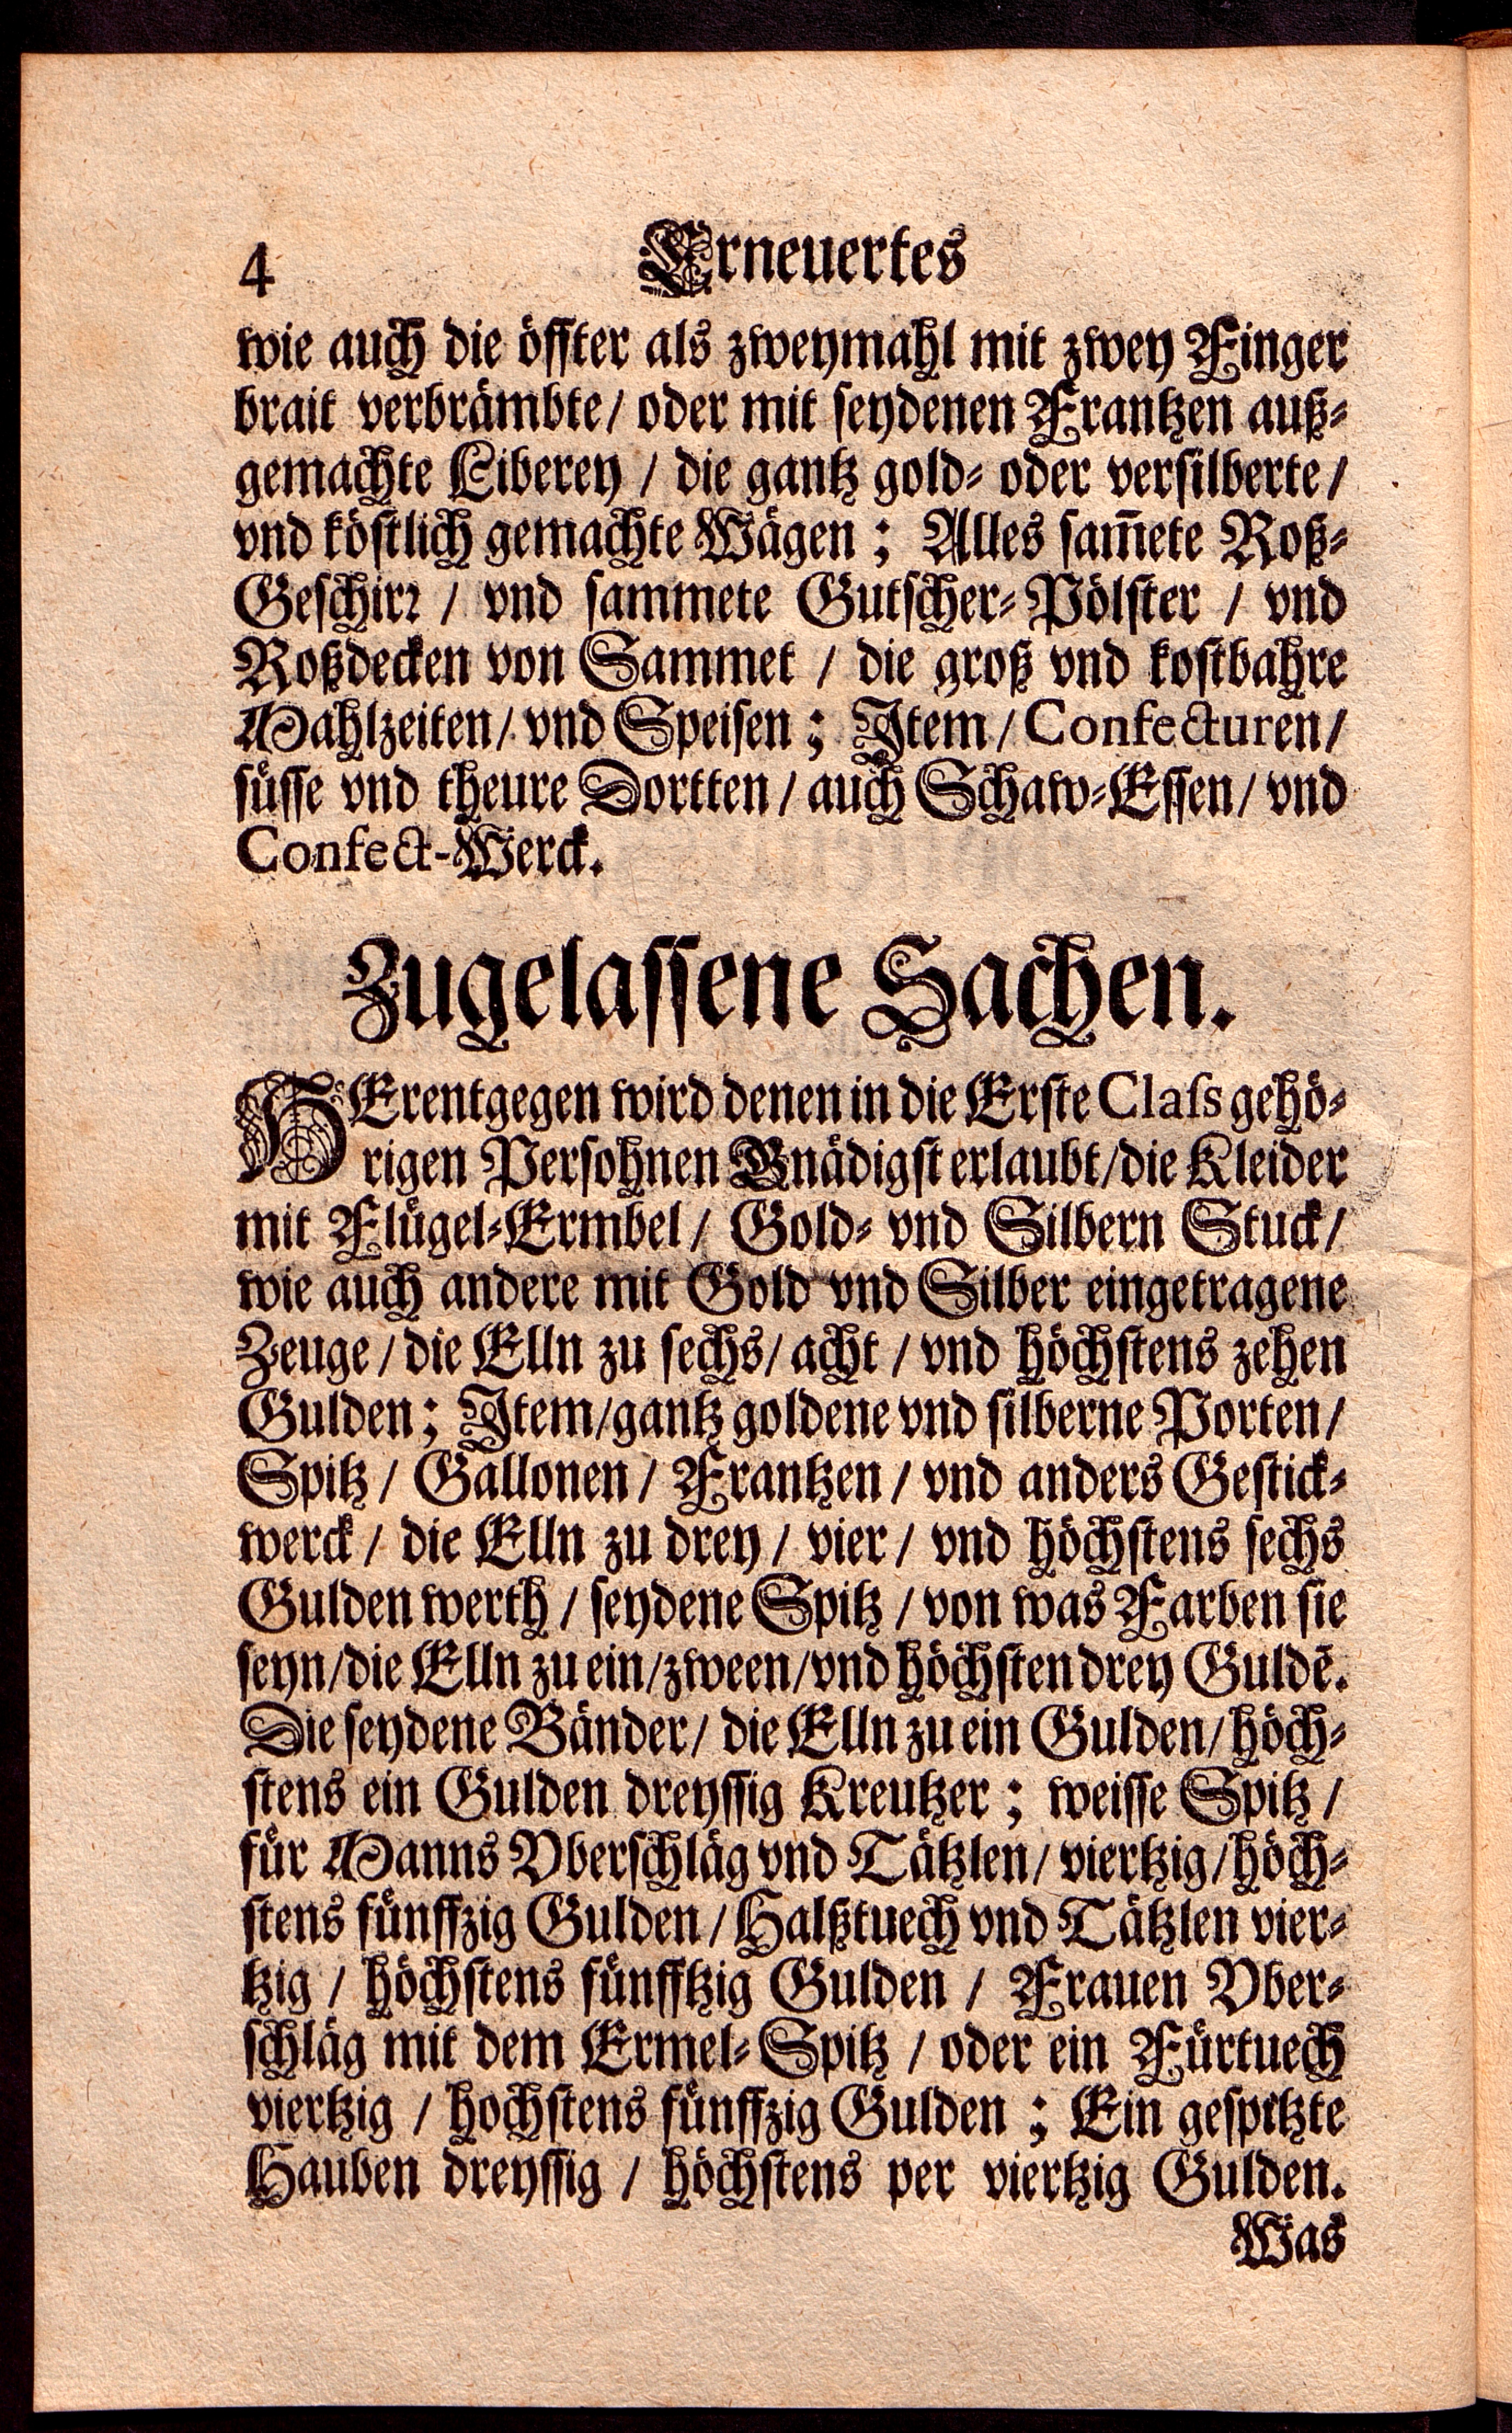 4 Erneuertes
wie auch die öffter als zweymahl mit zwey Finger
brait verbrämbte/ oder mit seydenen Frantzen auß-
gemachte Liberey / die gantz gold- oder versilberte/
vnd köstlich gemachte Wägen ; Alles sam̃ete Roß-
Geschirꝛ / vnd sammete Gutscher-Pölster / vnd
Roßdecken von Sammet / die groß vnd kostbahre
Mahlzeiten/ vnd Speisen ; Item / Confecturen/
süsse vnd theure Dortten / auch Schaw-Essen/ vnd
Confect-Werck.
Zugelassene Sachen.
HErentgegen wird denen in die Erste Class gehö-
rigen Persohnen Gnädigst erlaubt/die Kleider
mit Flügel-Ermbel / Gold- vnd Silbern Stuck/
wie auch andere mit Gold vnd Silber eingetragene
Zeuge / die Elln zu sechs/ acht / vnd höchstens zehen
Gulden ; Item/gantz goldene vnd silberne Porten/
Spitz / Gallonen / Frantzen / vnd anders Gestick-
werck / die Elln zu drey / vier / vnd höchstens sechs
Gulden werth / seydene Spitz / von was Farben sie
seyn/die Elln zu ein/zween/vnd höchsten drey Guldẽ.
Die seydene Bänder/ die Elln zu ein Gulden/ höch-
stens ein Gulden dreyssig Kreutzer ; weisse Spitz /
für Manns Vberschläg vnd Tätzlen/ viertzig/höch-
stens fünffzig Gulden / Halßtuech vnd Tätzlen vier-
tzig / höchstens fünfftzig Gulden / Frauen Vber-
schläg mit dem Ermel-Spitz / oder ein Fürtuech
viertzig / hochstens fünffzig Gulden ; Ein gespitzte
Hauben dreyssig / höchstens per viertzig Gulden.
Was